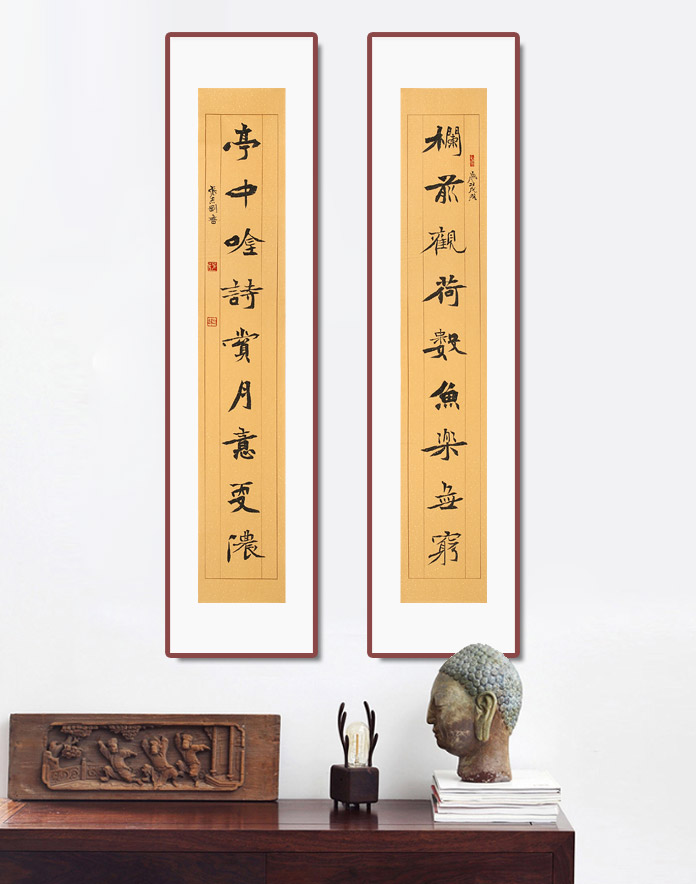 欄前觀荷數魚樂無窮
亭中唫詩賞月意更濃